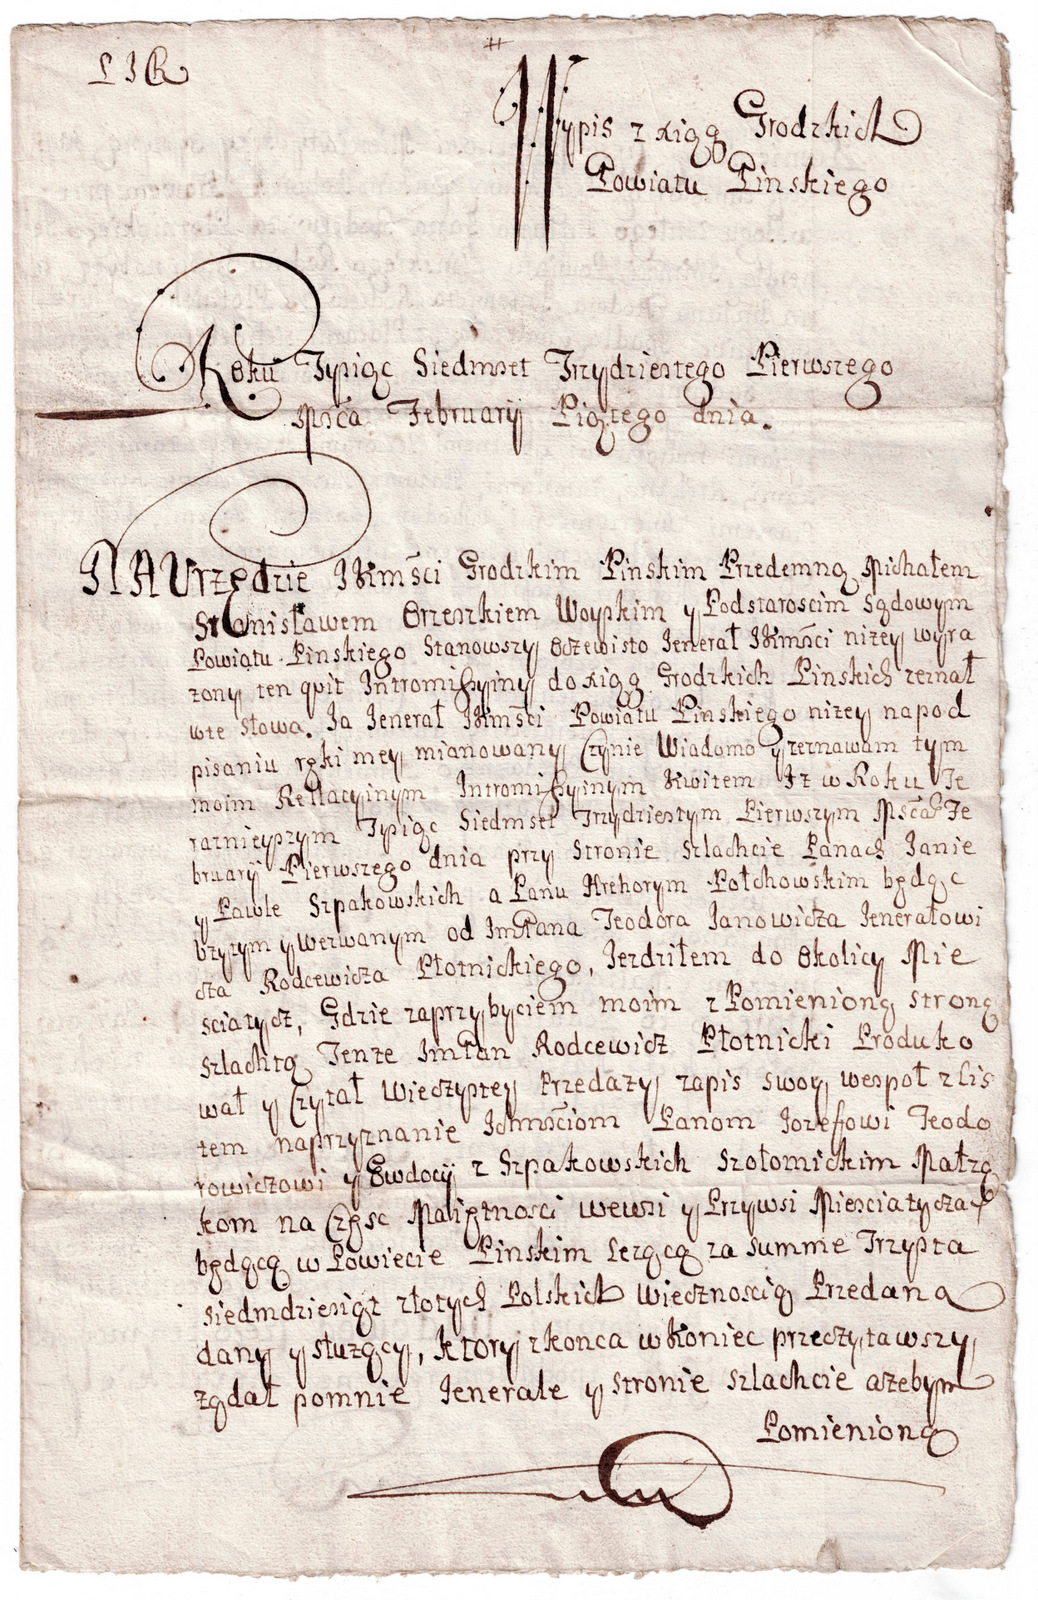 L I R
Wypis z xiąg Grodzkich
Powiatu Pinskiego
Roku Tysiąc Siedmset Trzydziestego Pierwszego
Msca Februarÿ Piątego dnia.
NA Urzędzie JKmsci Grodzkim Pinskim Przedemną Michałem
Stanisławem Orzeszkiem Woyskim y Podstaroscim Sądowym
Powiatu Pinskiego Stanowszy Oczewisto Jenerał JKmści niżey wyra
żony ten qvit Intromissyiny do xiąg Grodzkich Pinskich zeznał
wte słowa. Ja Jenerał JKmści Powiatu Pinskiego niżey na pod
pisaniu ręki mey mianowany Czynie Wiadomo y zeznawam tym
moim Rellacyinym Intromissyinym Kwitem Iż w Roku Te
raznieyszym Tysiąc Siedmset Trzydziestym Pierwszym Msca Fe
bruarÿ Pierwszego dnia przy stronie szlachcie Panach Janie
y Pawle Szpakowskich a Panu Hrehorym Połchowskim będąc
użytym y wezwanym od ImPana Teodora Janowicza Jenerałowi
cza Rodcewicza Płotnickiego, Jezdziłem do Okolicy Mie
sciatycz, Gdzie zaprzybyciem moim z Pomienioną stroną
szlachtą Tenże ImPan Rodcewicz Płotnicki Produko
wał y Czytał Wieczystey Przedaży zapis swoy wespoł z Lis
tem naprzyznanie Ichmściom Panom Jozeffowi Teodo
rowiczowi y Ewdocÿ z Szpakowskich Szołomickim Małżą
kom na Część Maiętnosci wewsi y Przywsi Miesciatyczach
będącą w Powiecie Pinskim Leżącą za summe Trzysta
siedmdziesiąt złotych Polskich wiecznoscią Przedaną
dany y służący, ktory zkonca w koniec przeczytawszy
żądał pomnie Jenerale y stronie szlachcie ażebym
Pomienioną